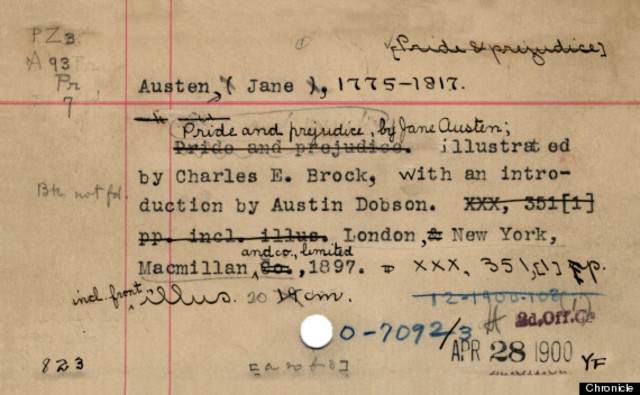 PZ3
A93
Pr
7
[Pride & prejudice]
Austen, (Jane), 1775-1817.
Pride and prejudice, by Jane Austen;
Pride and prejudice. illustrated
by Charles E. Brock, with an intro-
duction by Austin Dobson. XXX, 351[1]
pp. incl. illus. London, & New York,
and co., limited
Macmillan, Co., 1897. xxx, 351, [1] pp.
incl. front. illus. 20 cm.
not
12-1900-108
0-7092/3 H 2d. Off.
APR 28 1900 YF
823
Chronicle